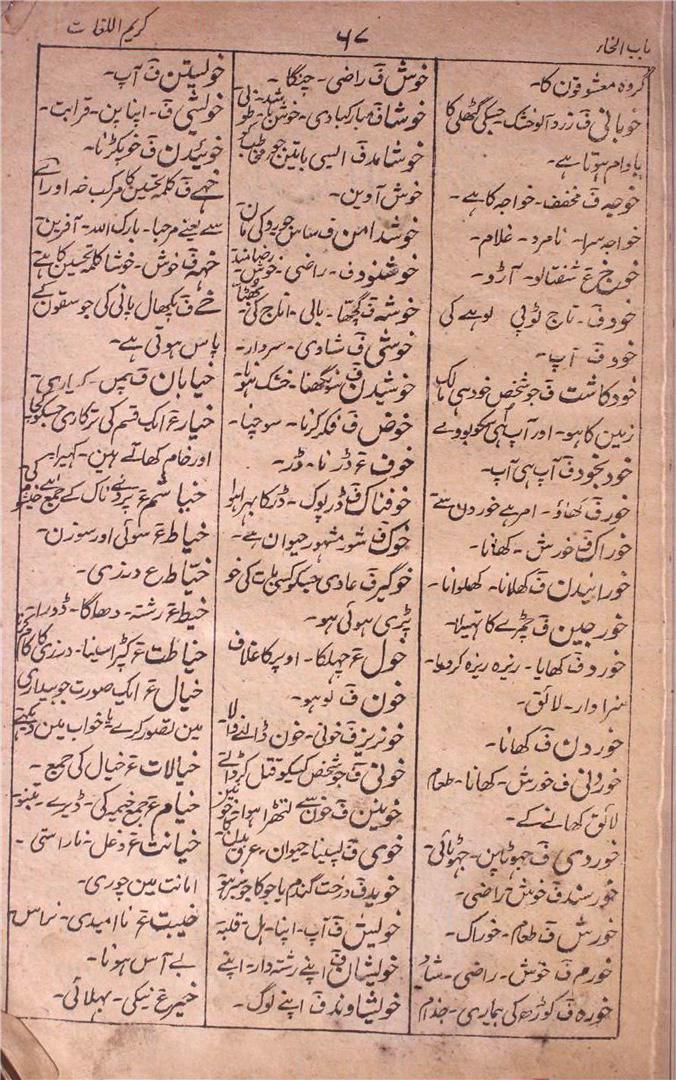 باب الخاء
۶۷
کریم اللغات
گروہ معشوقون کا۔
خوبانی ف زرد آلو خشک جسکی گٹھلی کا
بادام ہوتا ہے۔
خوجہ ف مخفف۔ خواجہ کا ہے۔
خواجہ سرا۔ نامرد۔ غلام۔
خوخ ع شفتالو۔ آڑو۔
خود ف۔ تاج ٹوپی لوہے کی
خود ف آپ۔
خود کاشت ف جو شخص خود ہی مالک
زمین کا ہو۔ اور آپ ہی اسکو بووے
خود بخود ف آپ ہی آپ۔
خور ف کھاؤ۔ امر ہے خوردن سے
خوراک ف خورش۔ کھانا۔
خورانیدن ف کھلانا۔ کھلوانا۔
خورجین ف چمڑے کا تھیلا۔
خورد ف کھایا۔ ریزہ ریزہ کر دیا۔
سزاوار۔ لائق۔
خوردن ف کھانا۔
خوردنی ف خورش۔ کھانا۔ طعام
لائق کھانے کے۔
خوردی ف چھوٹاپن۔ چھوٹائی۔
خورسند ف خوش راضی۔
خورش ف طعام۔ خوراک۔
خورم ف خوش۔ راضی۔ شاد
خورہ ف کوڑھ کی بیماری۔ جذام
خوش ف راضی۔ چنگا۔
خوشا ف مبارکبادی۔
خوشامد ف ایسی باتین جو مخاطب کو
خوش آوین۔
خوشدامن ف ساس جورو کی مان
خوشنود ف۔ راضی۔ خوش۔ رضامند
خوشہ ف گچھا۔ بالی۔ اناج کی۔
خوشی ف شادی۔ سردار۔
خوشیدن ف سوکھنا۔ خشک ہونا۔
خوض ف فکر کرنا۔ سوچنا۔
خوف ع ڈرنا۔ ڈر۔
خوفناک ف ڈرپوک۔ ڈر کا بھرا ہوا
خوک ف سور مشہور حیوان ہے۔
خوگیر ف عادی جسکو کسی بات کی خو
پڑی ہوئی ہو۔
خول ع چھلکا۔ اوپر کا غلاف
خون ف لوہو۔
خونریز ف خونی۔ خون ڈالنے والا
خونی ف جو شخص کسیکو قتل کر ڈالے
خونین ف خون سے لتھڑا ہوا
خوی ف پسینا۔ حیوان۔ عرق
خوید ف درخت گندم یا جو کا جو سبز ہو
خویش ف آپ۔ اپنا۔ ہل۔ قلبہ
خویشان ف اپنے رشتہ دار۔ اپنے
خویشاوند ف اپنے لوگ۔
خویشتن ف آپ۔
خویشی ف۔ اپناپن۔ قرابت۔
خوئیدن ف خو پکڑنا۔
خہے ف کلمہ تحسین کا مرکب خہ اور اے
سے یعنے مرحبا۔ بارک اللہ۔ آفرین
خہہ ف خوش۔ خوشا کلمہ تحسین کا ہے
خے ف پکھال پانی کی جو سقون کے
پاس ہوتی ہے۔
خیابان ف چمن۔ کیاری۔
خیار ع ایک قسم کی ترکاری جسکو کچا
اور خام کھاتے ہین۔ کھیرا۔
خیاشم ع پردے ناک کے جمع ہے
خیاط ع سوئی اور سوزن۔
خیّاط ع درزی۔
خیط ع رشتہ۔ دھاگا۔ ڈورا۔
خیاطت ع کپڑا سینا۔ درزی کا کام
خیال ع ایک صورت جو بیداری
مین تصور کرے یا خواب مین دیکھے
خیالات ع خیال کی جمع۔
خیام ع جمع خیمہ کی۔ ڈیرے۔ تنبو۔
خیانت ع دغل۔ ناراستی۔
امانت مین چوری۔
خیبت ع ناامیدی۔ نراس
بے آس ہونا۔
خیر ع نیکی۔ بھلائی۔